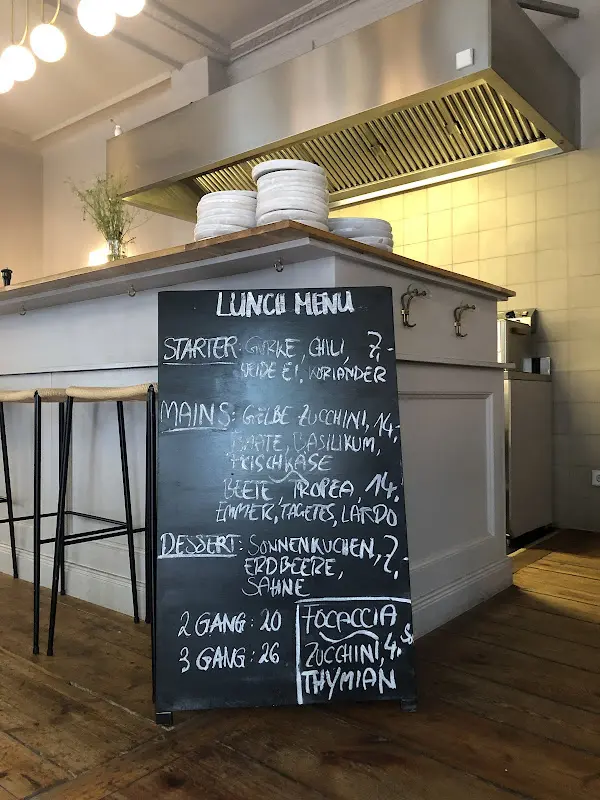 LUNCH MENU
STARTER: GURKE, CHILI, 7,-
WEIDE EI, KORIANDER
MAINS: GELBE ZUCCHINI, 14,-
TOMATE, BASILIKUM,
FRISCHKÄSE
BEETE, TROPEA, 14,-
EMMER, TAGETES, LARDO
DESSERT: SONNENKUCHEN, 7,-
ERDBEERE,
SAHNE
2 GANG: 20
3 GANG: 26
FOCACCIA
ZUCCHINI, 4.5
THYMIAN